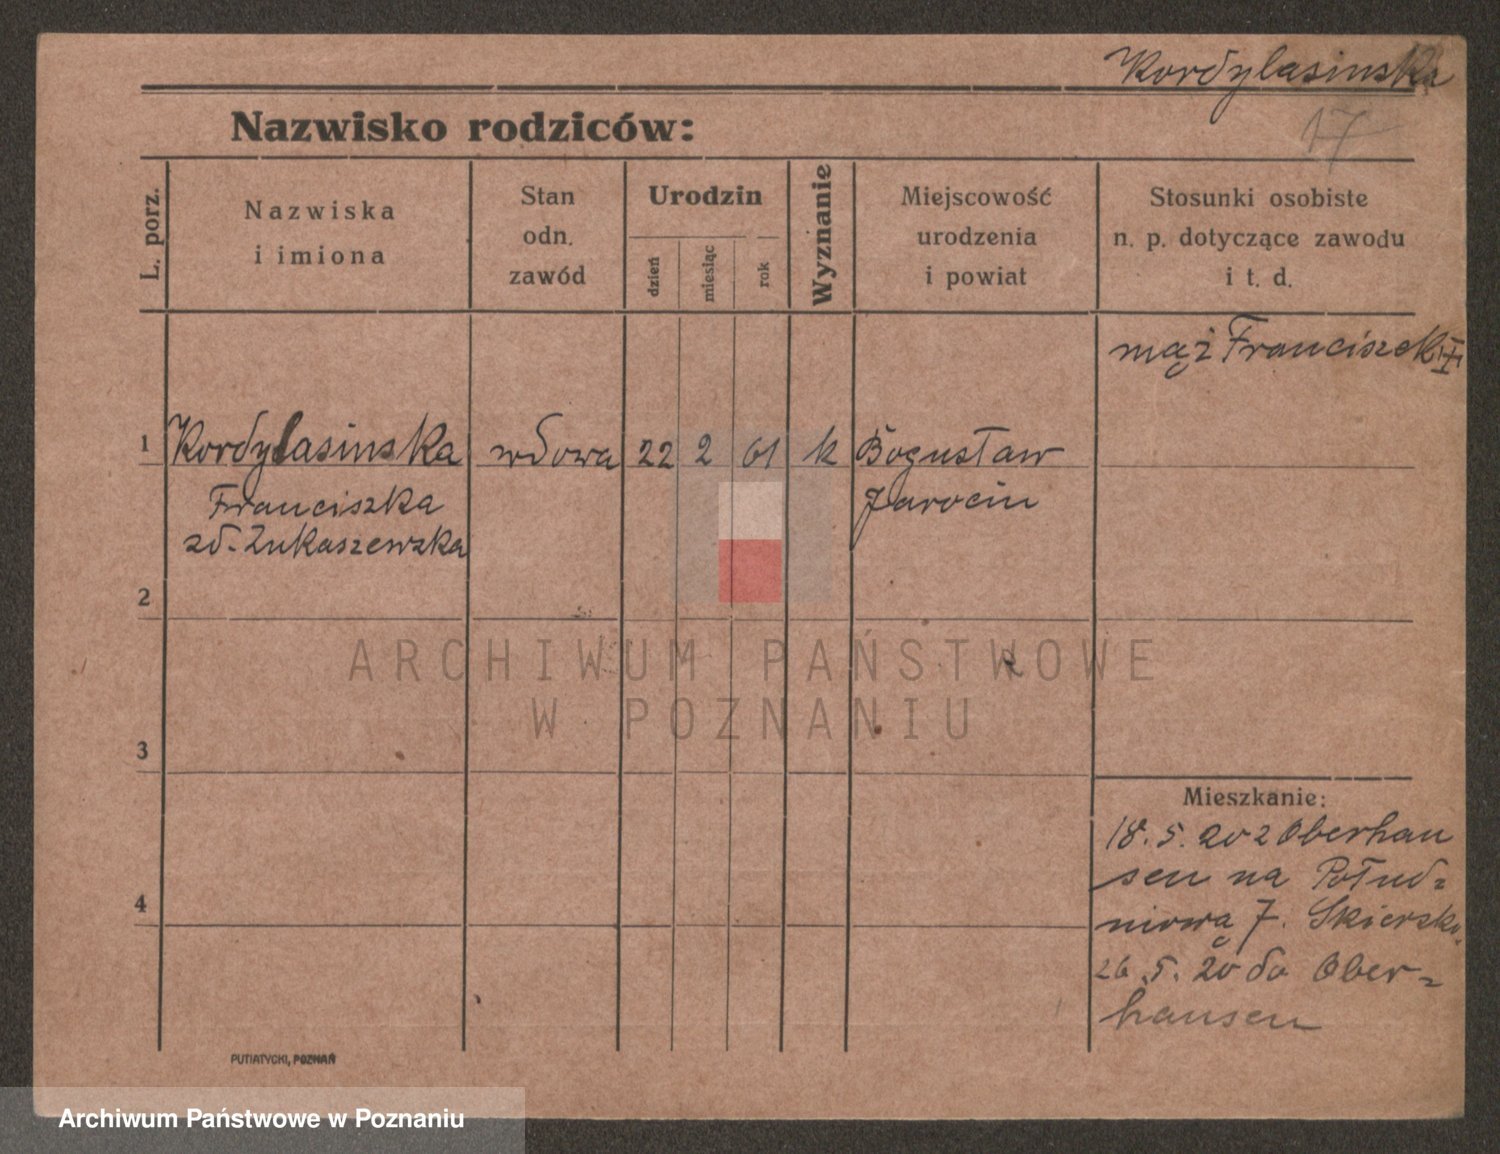 Kordylasinska
17
Nazwisko rodziców:
L. porz.
Nazwiska
i imiona
Stan
odn.
zawód
Urodzin
dzień
miesiąc
rok
Wyznanie
Miejscowość
urodzenia
i powiat
Stosunki osobiste
n. p. dotyczące zawodu
i t. d.
mąż Franciszek
1 Kordylasinska wdowa 22 2 61 k Bogusław
Franciszka Jarocin
zd. Łukaszewska
2
3
4
ARCHIWUM PAŃSTWOWE
W POZNANIU
Mieszkanie:
18. 5. 20 z Oberhau
sen na Połud=
niową 7. Skierska
26. 5. 20 do Ober=
hausen
PUTIATYCKI, POZNAŃ
Archiwum Państwowe w Poznaniu